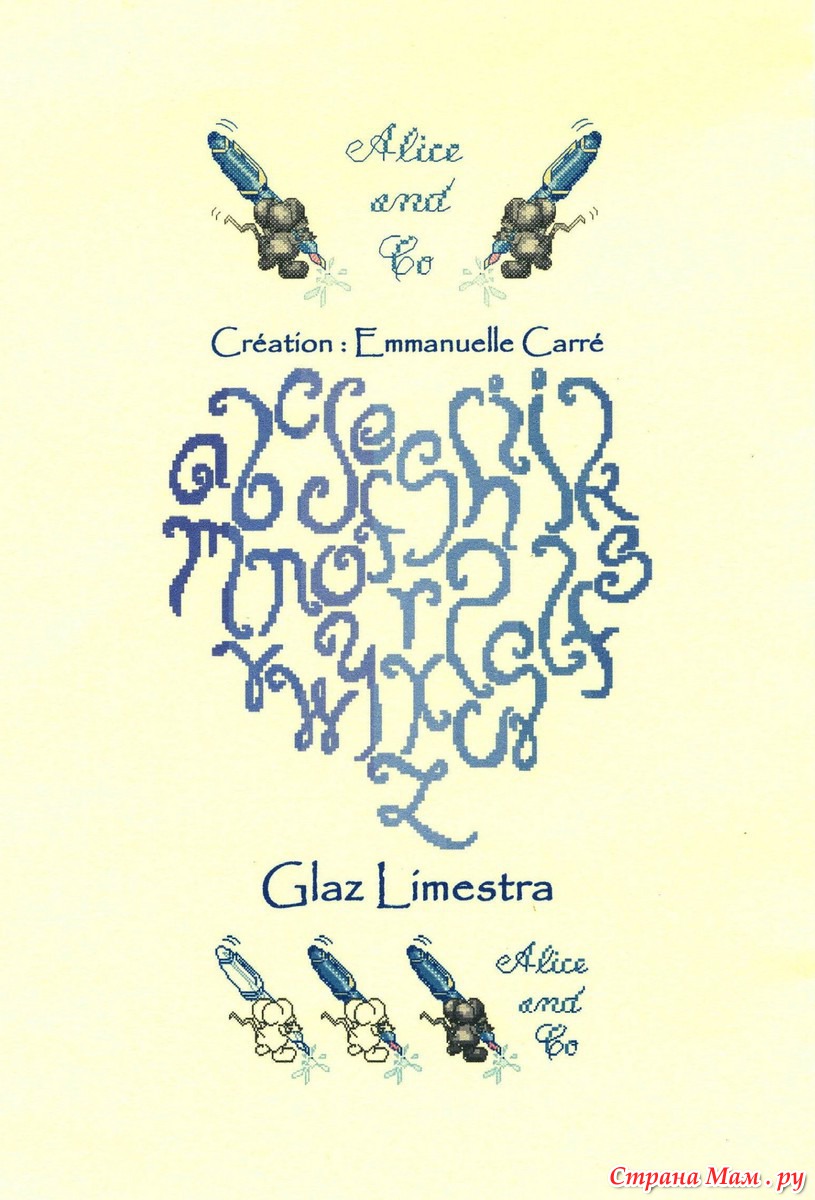 Alice
and
Co
Création : Emmanuelle Carré
a b c e g h i j k
m n o r s
v w y x
z
Glaz Limestra
Alice
and
Co
Страна Мам . ру